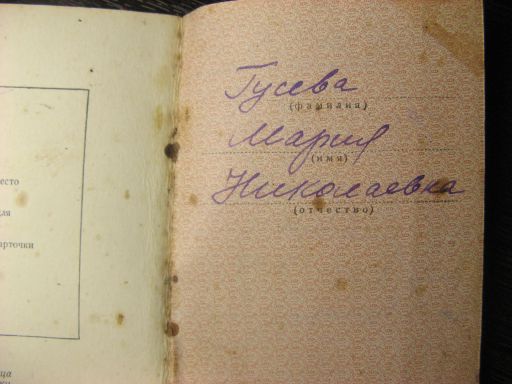 есто
для
арточки
ца
Гусева
(фамилия)
Мария
(имя)
Николаевна
(отчество)